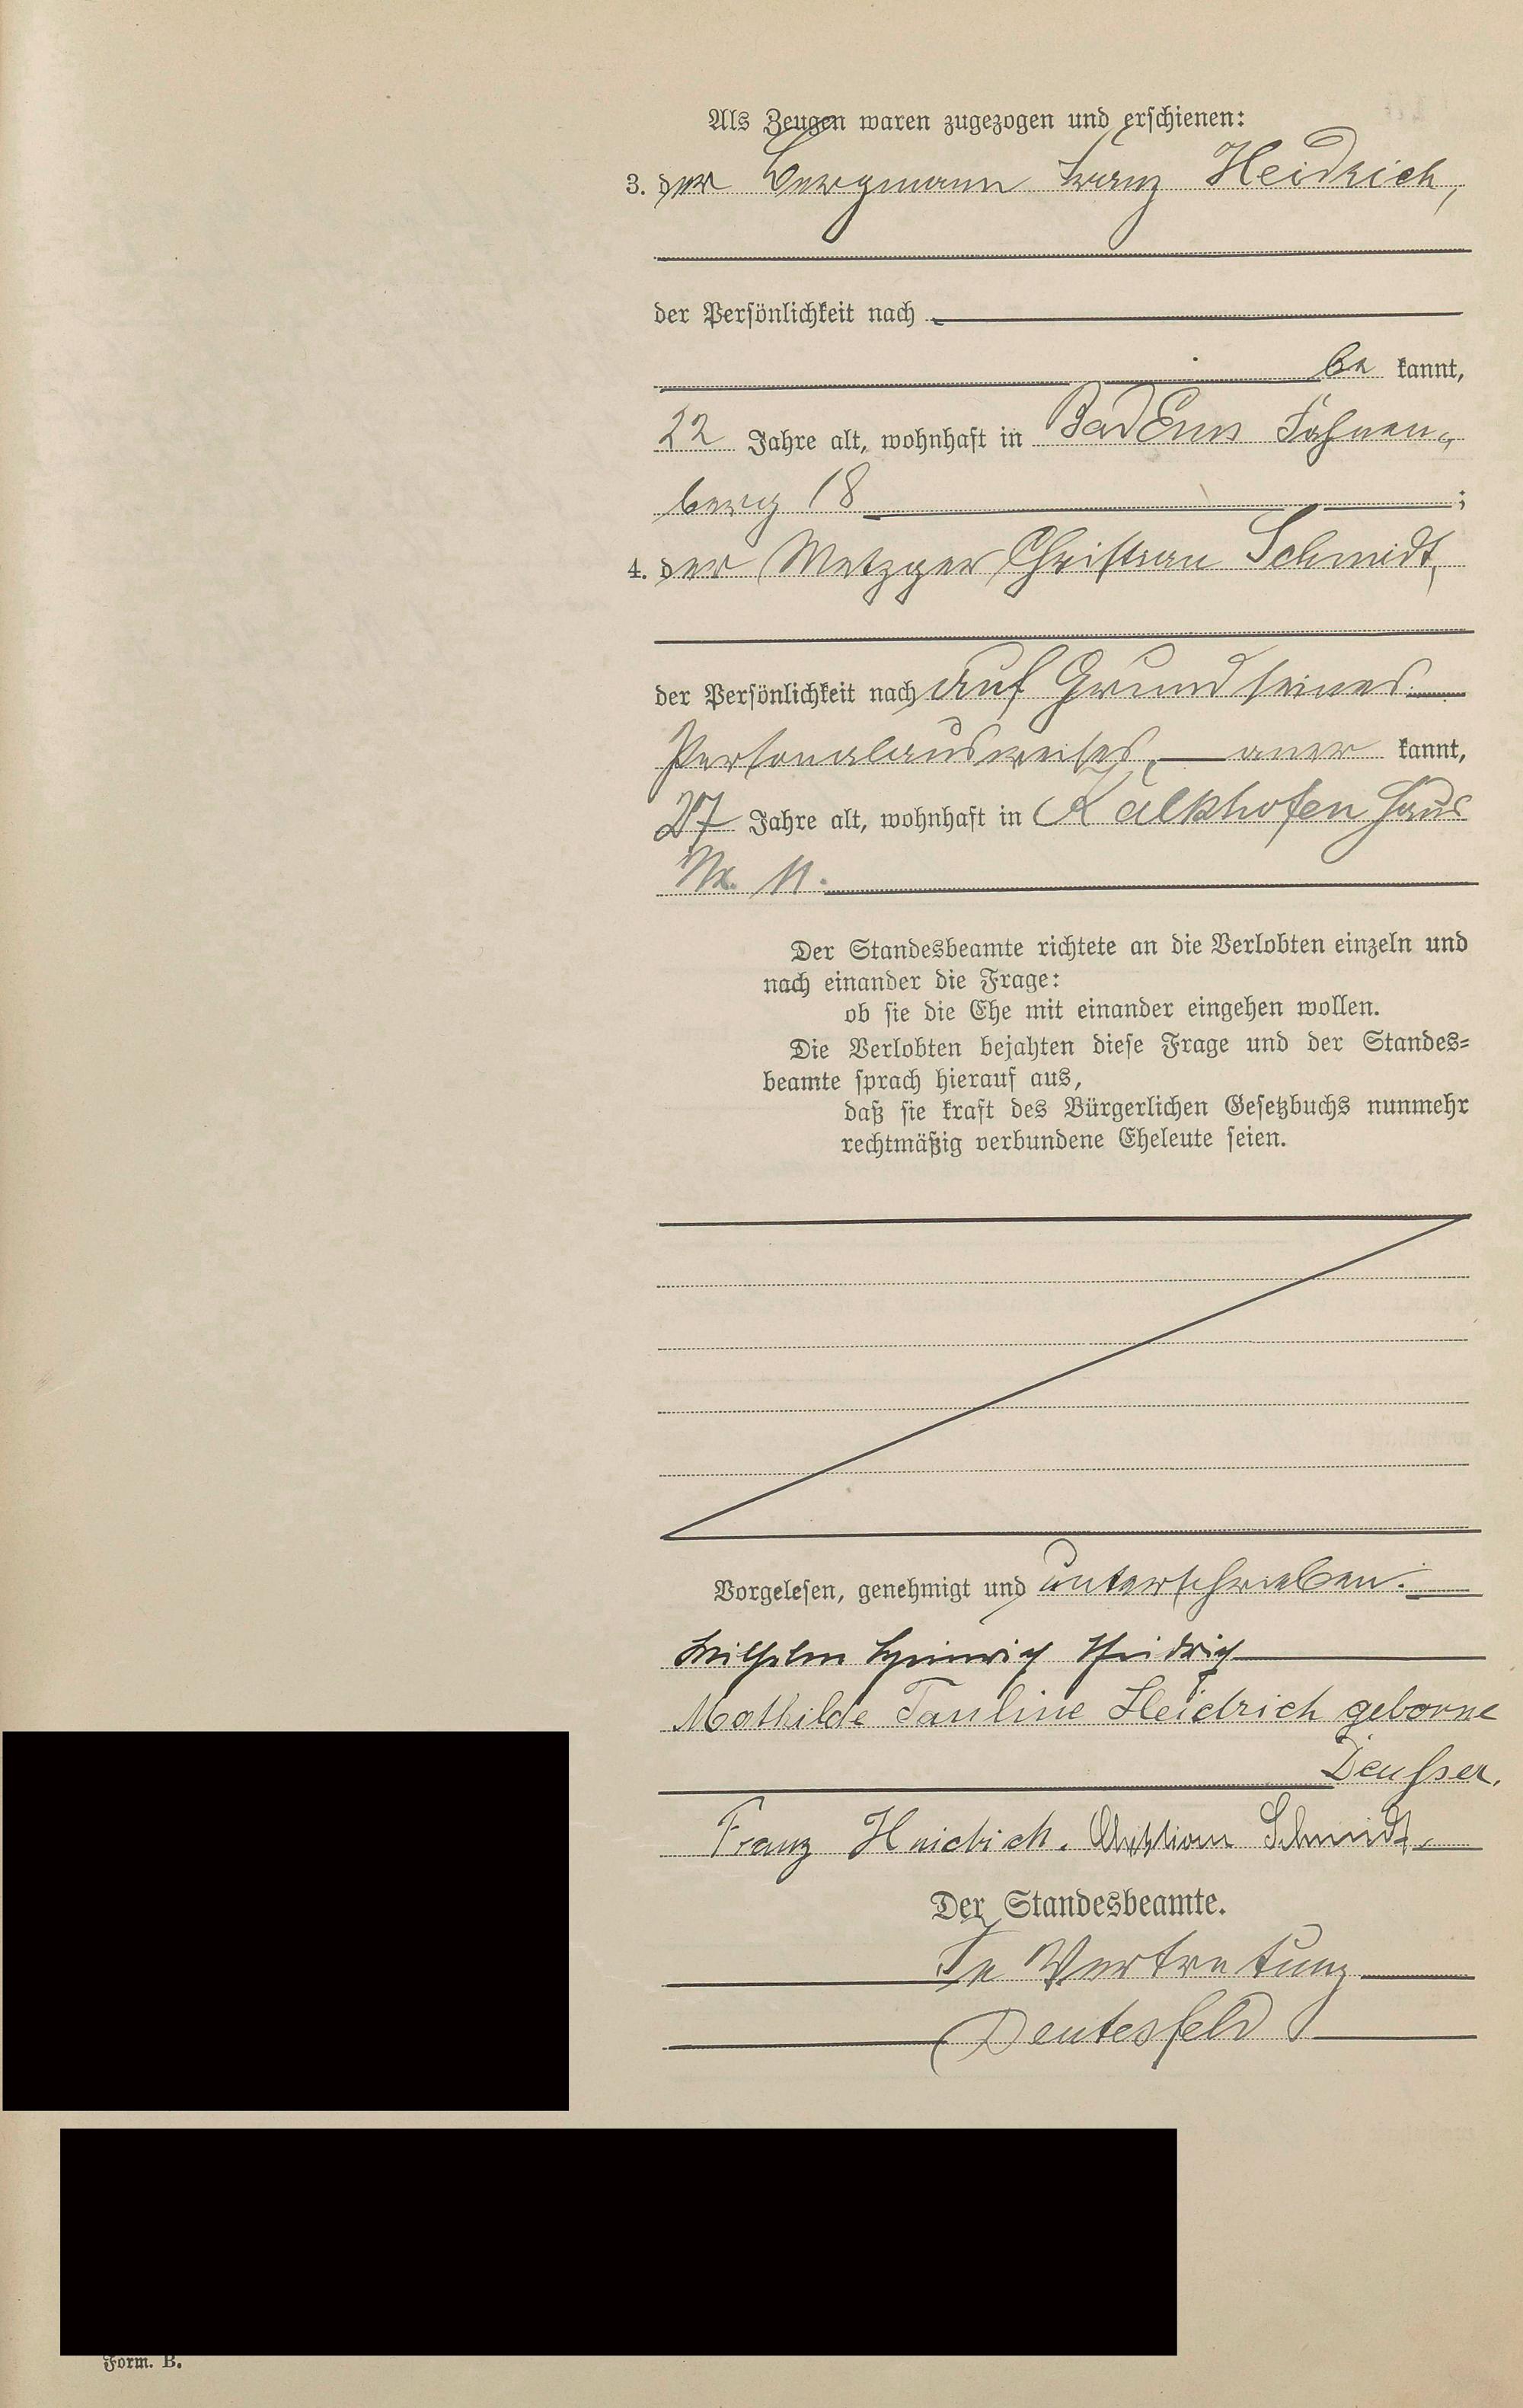 Als Zeugen waren zugezogen und erschienen:
3. der Bergmann Franz Heidrich,
der Persönlichkeit nach
be kannt,
22 Jahre alt, wohnhaft in Bad Ems Fahnen-
berg 18 ;
4. der Metzger Christian Schmidt,
der Persönlichkeit nach auf Grund seines
Personalausweises, aner kannt,
27 Jahre alt, wohnhaft in Kalkhofen Haus
Nr. 11.
Der Standesbeamte richtete an die Verlobten einzeln und
nach einander die Frage:
ob sie die Ehe mit einander eingehen wollen.
Die Verlobten bejahten diese Frage und der Standes-
beamte sprach hierauf aus,
daß sie kraft des Bürgerlichen Gesetzbuchs nunmehr
rechtmäßig verbundene Eheleute seien.
Vorgelesen, genehmigt und unterschrieben.
Wilhelm Heinrich Heidrich
Mathilde Pauline Heidrich geborne
Deußer.
Franz Heidrich. Christian Schmidt.
Der Standesbeamte.
In Vertretung
Deutesfeld
Form. B.